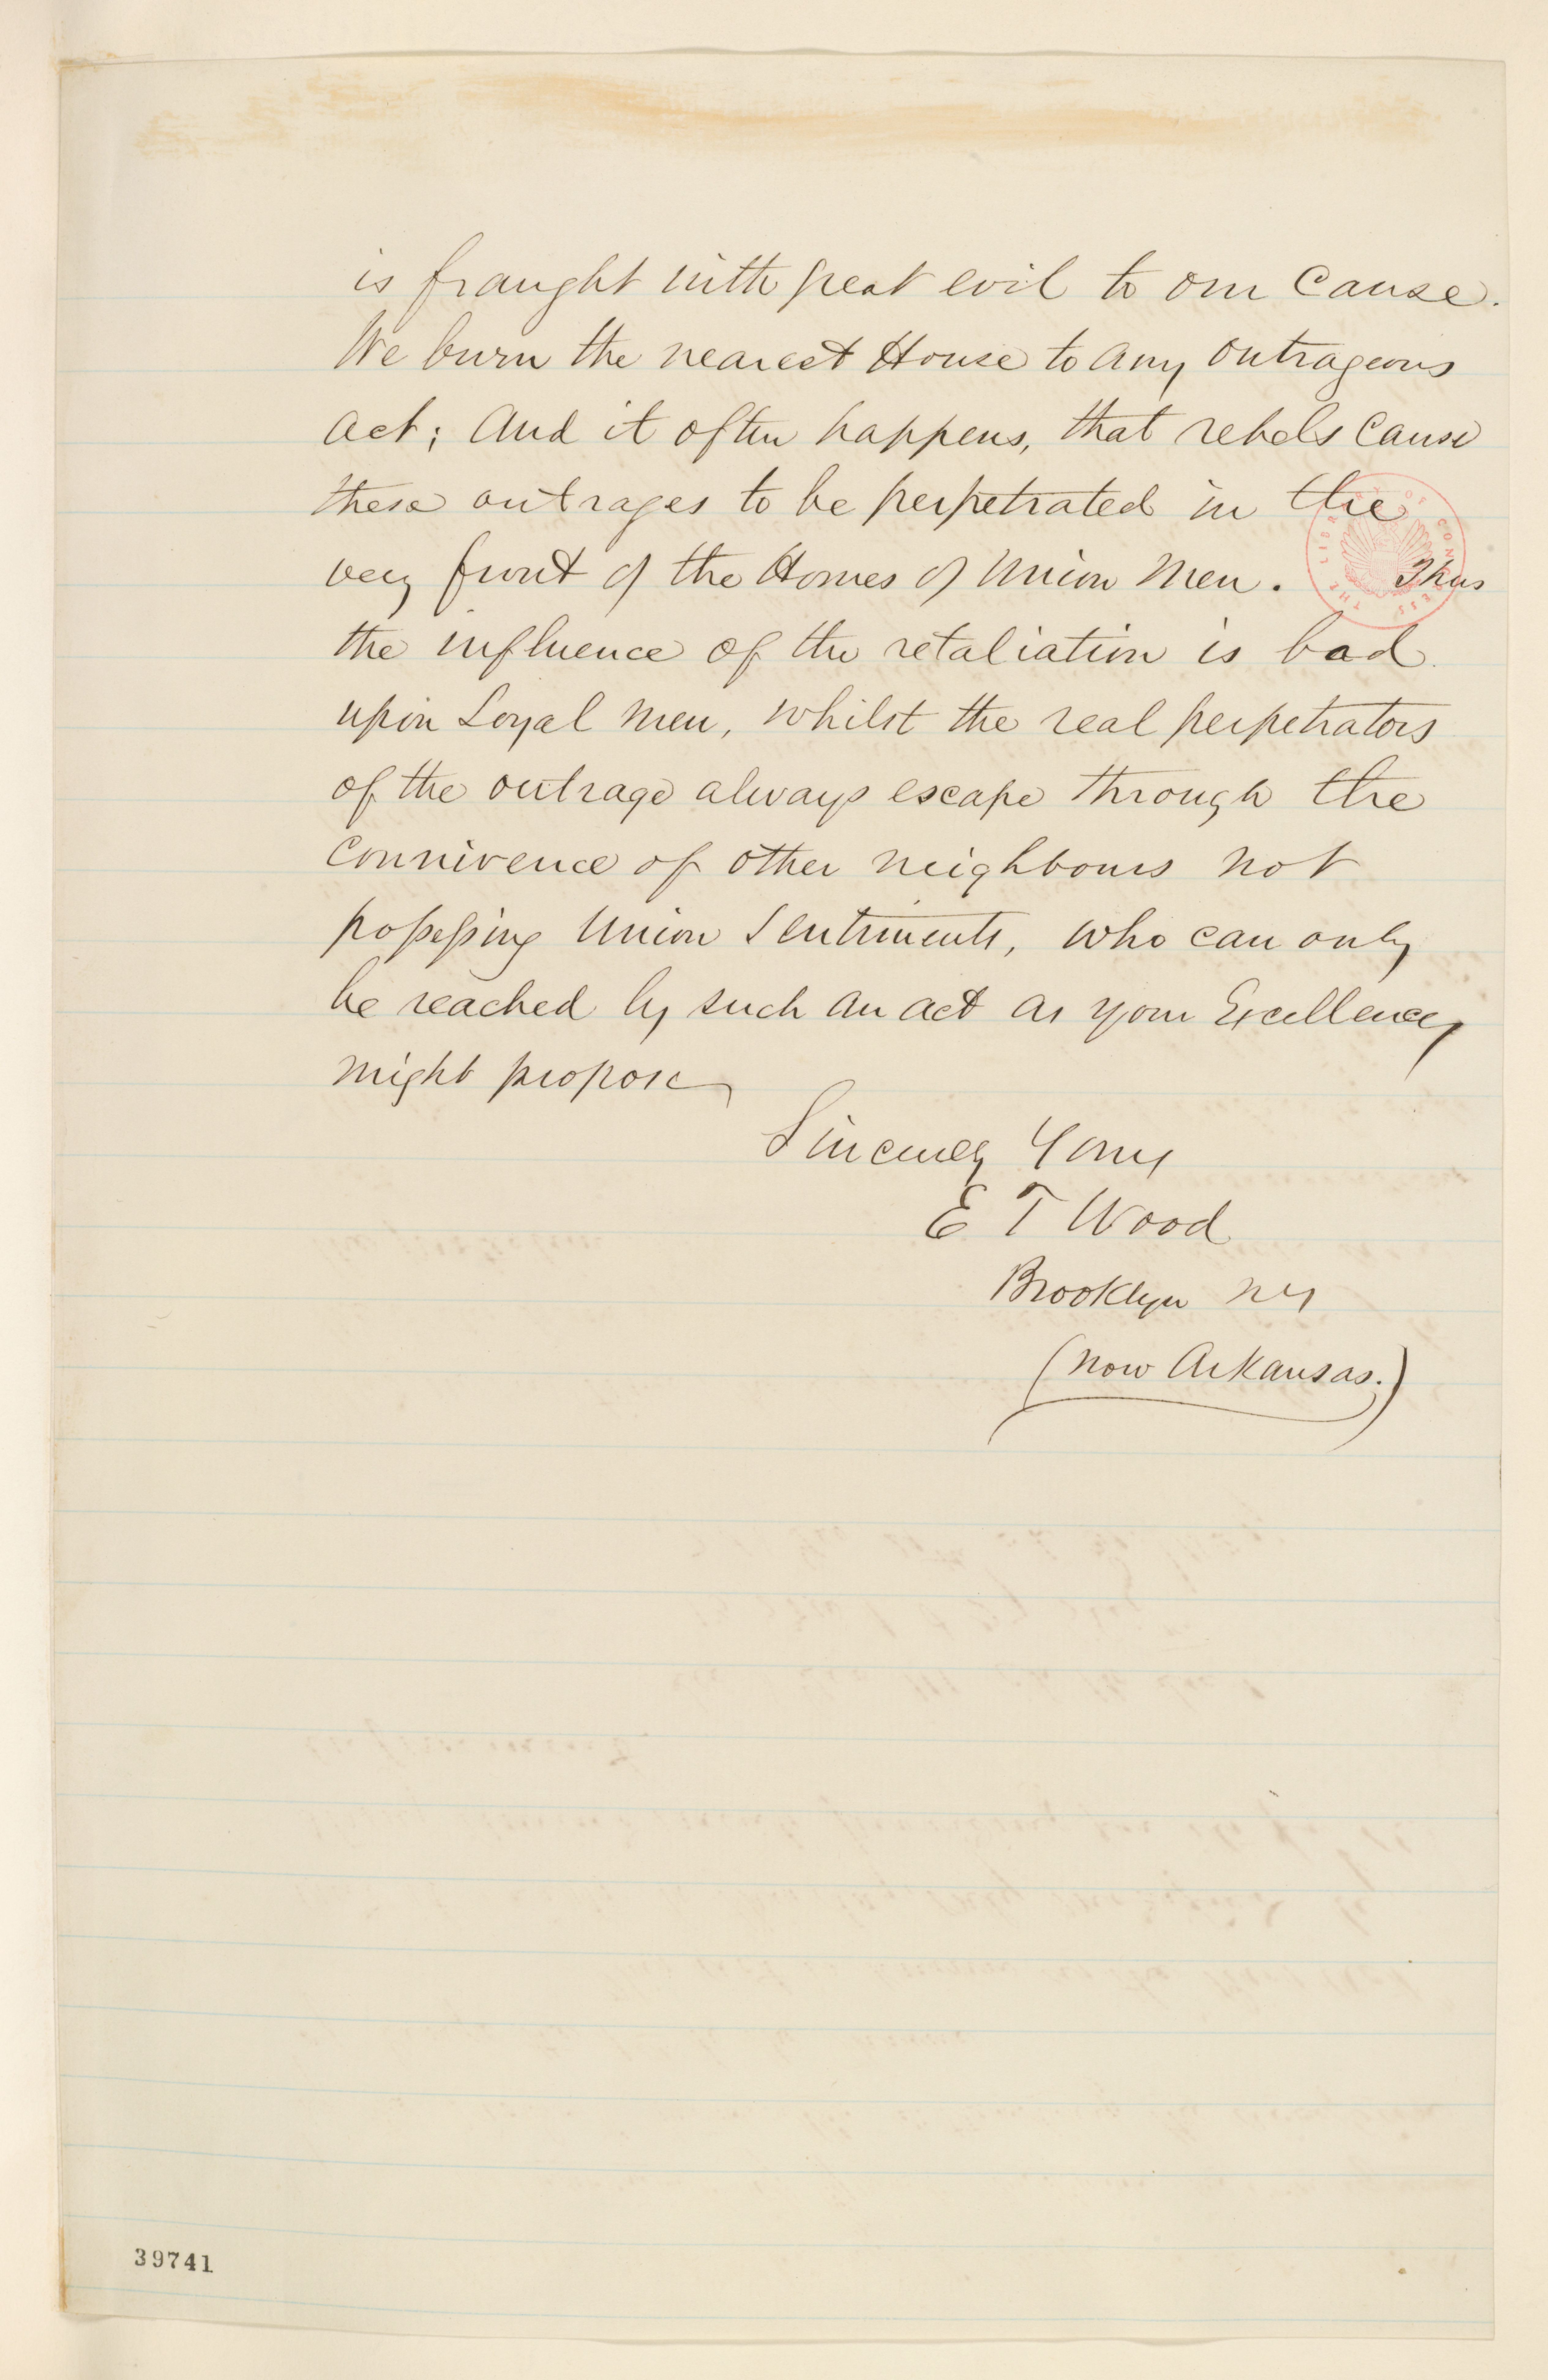 is fraught with great evil to our Cause.
We burn the nearest House to any outrageous
act; And it often happens, that rebels Cause
these outrages to be perpetrated in the
very front of the Homes of Union Men. Thus
the influence of the retaliation is bad
upon Loyal men, whilst the real perpetrators
of the outrage always escape through the
connivence of other neighbours not
possessing Union Sentiments, who can only
be reached by such an act as your Excellency
might propose
Sincerely Yours
E T Wood
Brooklyn NY
(now Arkansas.)
THE LIBRARY OF CONGRESS
39741